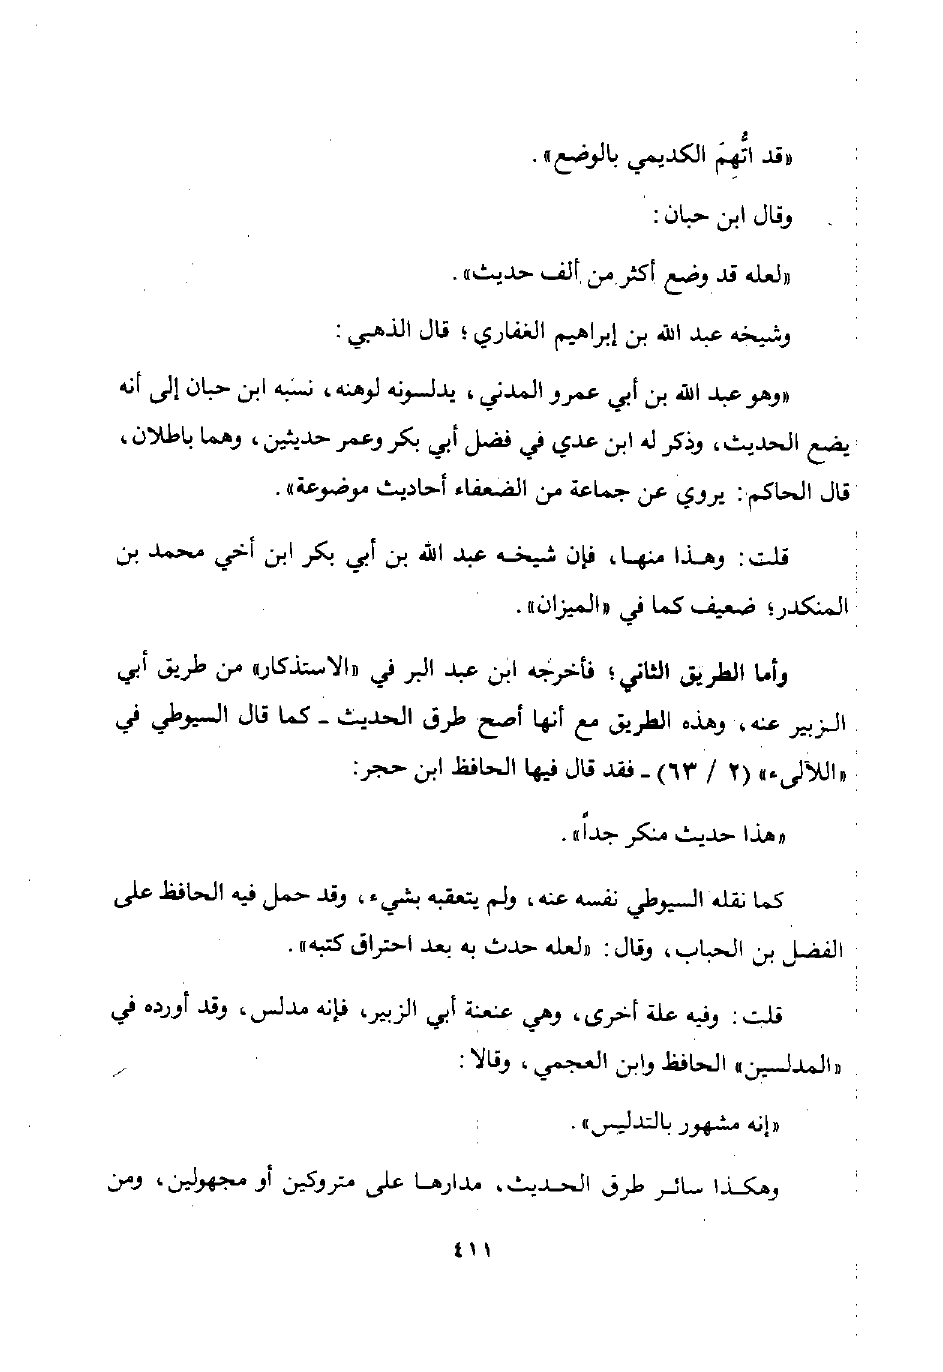 «قد اتُّهِمَ الكديمي بالوضع».
وقال ابن حبان :
«لعله قد وضع أكثر من ألف حديث».
وشيخه عبد الله بن إبراهيم الغفاري ؛ قال الذهبي :
«وهو عبد الله بن أبي عمرو المدني ، يدلسونه لوهنه ، نسبه ابن حبان إلى أنه
يضع الحديث ، وذكر له ابن عدي في فضل أبي بكر وعمر حديثين ، وهما باطلان ،
قال الحاكم : يروي عن جماعة من الضعفاء أحاديث موضوعة».
قلت : وهذا منها ، فإن شيخه عبد الله بن أبي بكر ابن أخي محمد بن
المنكدر ؛ ضعيف كما في «الميزان».
وأما الطريق الثاني ؛ فأخرجه ابن عبد البر في «الاستذكار» من طريق أبي
الزبير عنه ، وهذه الطريق مع أنها أصح طرق الحديث ـ كما قال السيوطي في
«اللآلىء» (٢ / ٦٣) ـ فقد قال فيها الحافظ ابن حجر :
«هذا حديث منكر جداً».
كما نقله السيوطي نفسه عنه ، ولم يتعقبه بشيء ، وقد حمل فيه الحافظ على
الفضل بن الحباب ، وقال : «لعله حدث به بعد احتراق كتبه».
قلت : وفيه علة أخرى ، وهي عنعنة أبي الزبير ، فإنه مدلس ، وقد أورده في
«المدلسين» الحافظ وابن العجمي ، وقالا :
«إنه مشهور بالتدليس».
وهكذا سائر طرق الحديث ، مدارها على متروكين أو مجهولين ، ومن
٤١١